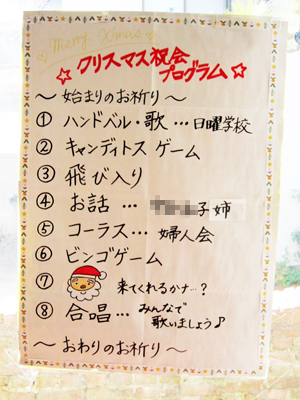 Merry Xmas
☆クリスマス祝会
プログラム☆
〜始まりのお祈り〜
① ハンドベル・歌…日曜学校
② キャンディトス ゲーム
③ 飛び入り
④ お話 … 子姉
⑤ コーラス… 婦人会
⑥ ビンゴゲーム
⑦ 来てくれるかナ…?
⑧ 合唱… みんなで
歌いましょう♪
〜おわりのお祈り〜